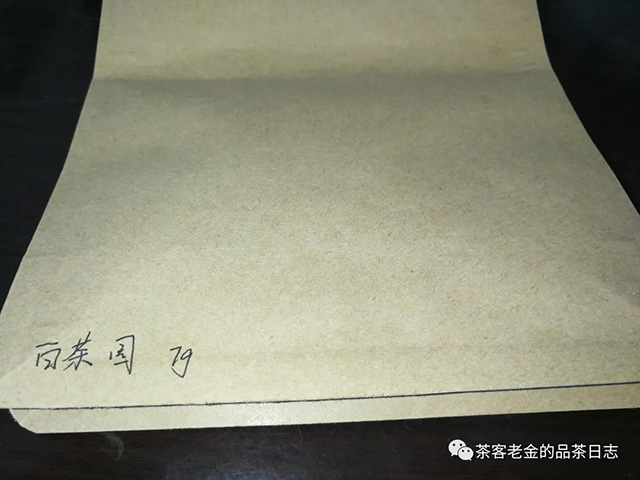 百茶园 7g
茶客老金的品茶日志